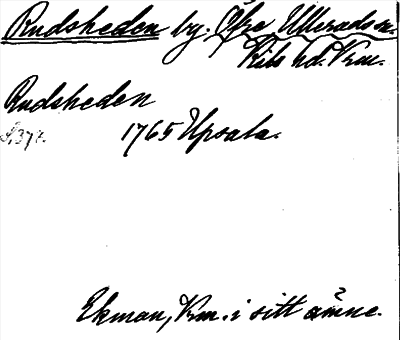 Rudsheden by. Öfre Ullerads sn.
Kils hd. Vrm.
Rudsheden
1765 Upsala.
Ekman, Vrm. i sitt ämne.